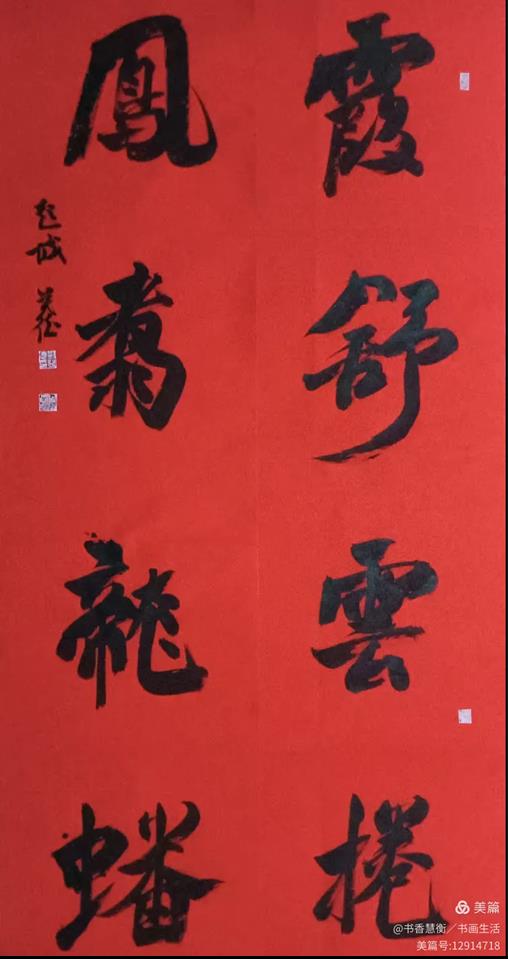 霞舒雲捲
鳳翥龍蟠
美篇
@书香慧衡／书画生活
美篇号:12914718